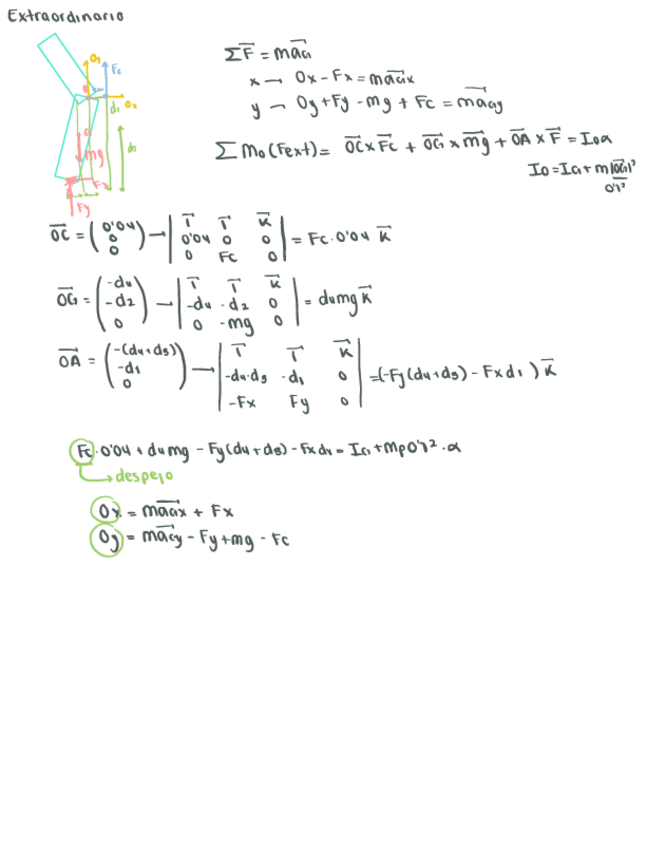 Extraordinario
ΣF̅ = ma̅G
x → Ox - Fx = ma̅Gx
y → Oy + Fy - mg + Fc = ma̅Gy
Σ Mo (Fext) = O̅C̅ x F̅c + O̅G̅ x m̅g̅ + O̅A̅ x F̅ = Ioα
Io = IG + m|O̅G̅|²
0'1²
Oy
Fc
d1 Ox
G
mg
d1
Fx
Fy
O̅C̅ = (0'04 0 0) → | i̅ j̅ k̅ ; 0'04 0 0 ; 0 Fc 0 | = Fc · 0'04 k̅
O̅G̅ = (-d4 -d2 0) → | i̅ j̅ k̅ ; -d4 -d2 0 ; 0 -mg 0 | = d4mg k̅
O̅A̅ = (-(d4+d5) -d1 0) → | i̅ j̅ k̅ ; -d4-d5 -d1 0 ; -Fx Fy 0 | = (-Fy(d4+d5) - Fxd1) k̅
Fc · 0'04 + d4mg - Fy(d4+d5) - Fxd1 = IG + mp0'1² · α
→ despejo
Ox = ma̅Gx + Fx
Oy = ma̅Gy - Fy + mg - Fc